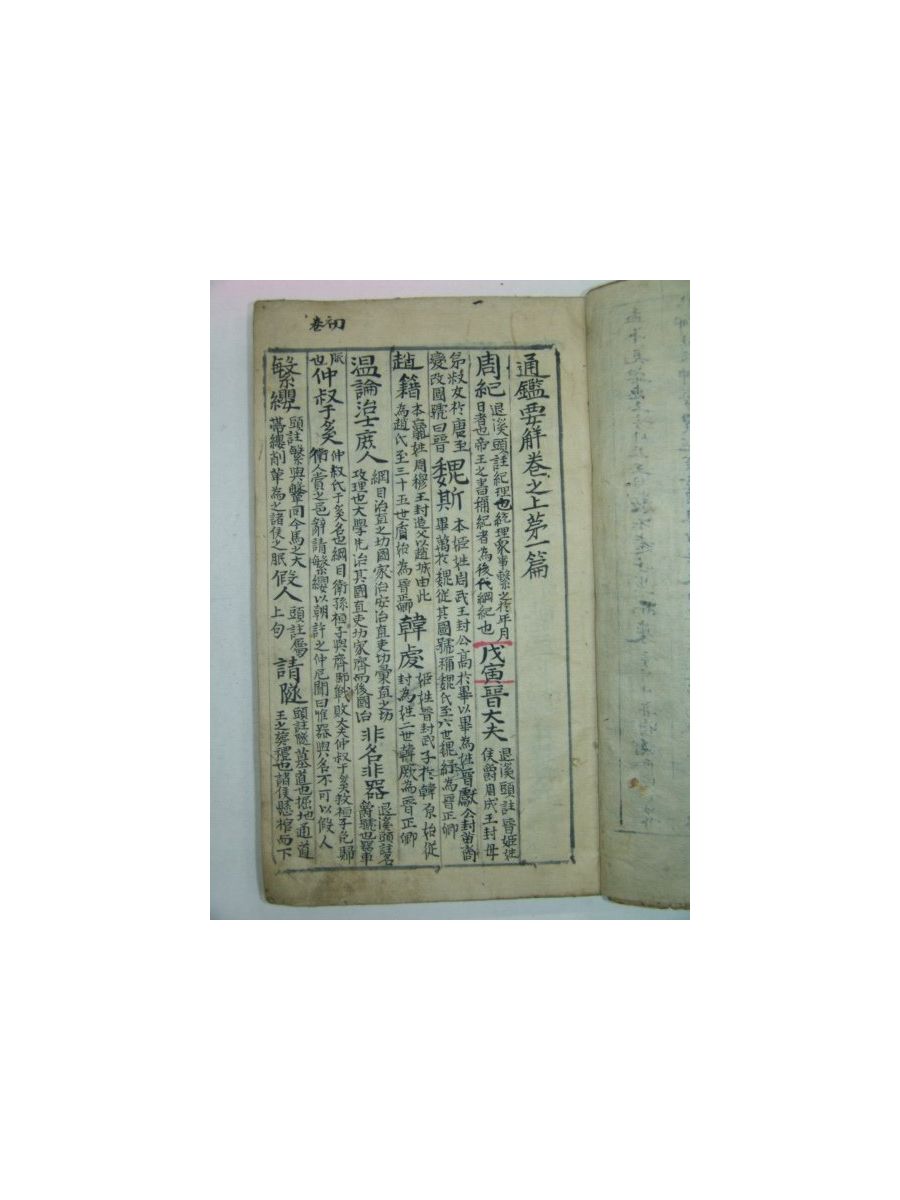 初卷
通鑑要觧卷之上第一篇
周紀 退溪頭註紀理也統理衆事繫之於年月
日者也帝王之書稱紀者為後代綱紀也 戊寅 晉大夫 退溪頭註晉姬姓
侯爵周成王封母
弟叔女於唐至
變改國號曰晉 魏斯 本姬姓周武王封公高於畢以畢為姓晋獻公封苗裔
畢萬於魏從其國號稱魏氏至六世魏紓為晋正卿
趙籍 本嬴姓周穆王封造父以趙城由此
為趙氏至三十五世 為晋卿 韓虔 姬姓晋封武子於韓原始從
封為姓二世韓厥為晋正卿
温論治士庶人 綱目治直之切國家治安治直吏切彙直之切
攻理也大學先治其國直吏切家齊而後國治 非名非器 退溪頭註名
爵號也器車
服
也 仲叔于奚 仲叔氏于奚名也綱目衛孫桓子與齊師戰敗大夫仲叔于奚救桓子免歸
衛人賞之邑辭請繁纓以朝許之仲尼聞曰惟器與名不可以假人
繁纓 頭註繁與鞶同今馬之大
帶纓削革為之諸侯之服 假人 頭註屬
上句 請隧 頭註隧墓道也掘地通道
王之葬禮也諸侯懸棺而下